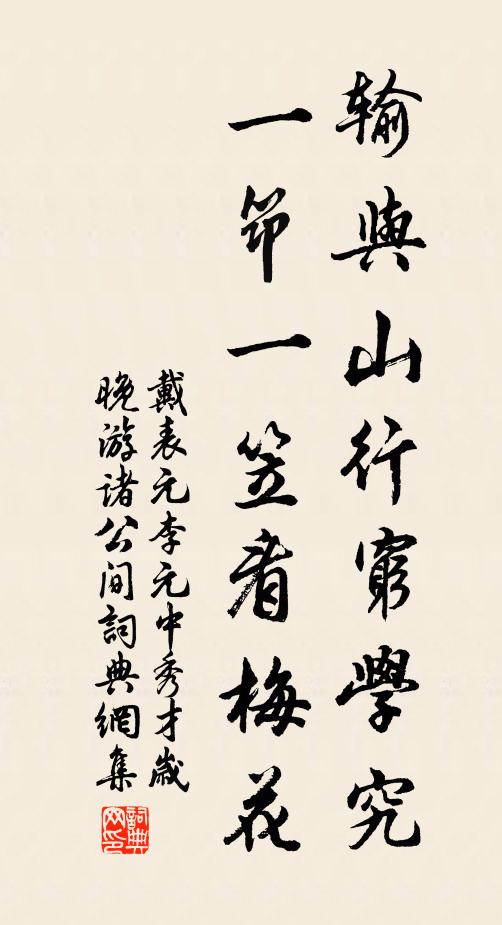 輸與山行窮學究
一筇一笠看梅花
戴表元李元中秀才歲
晚游諸公间詞典網集
詞典
网印